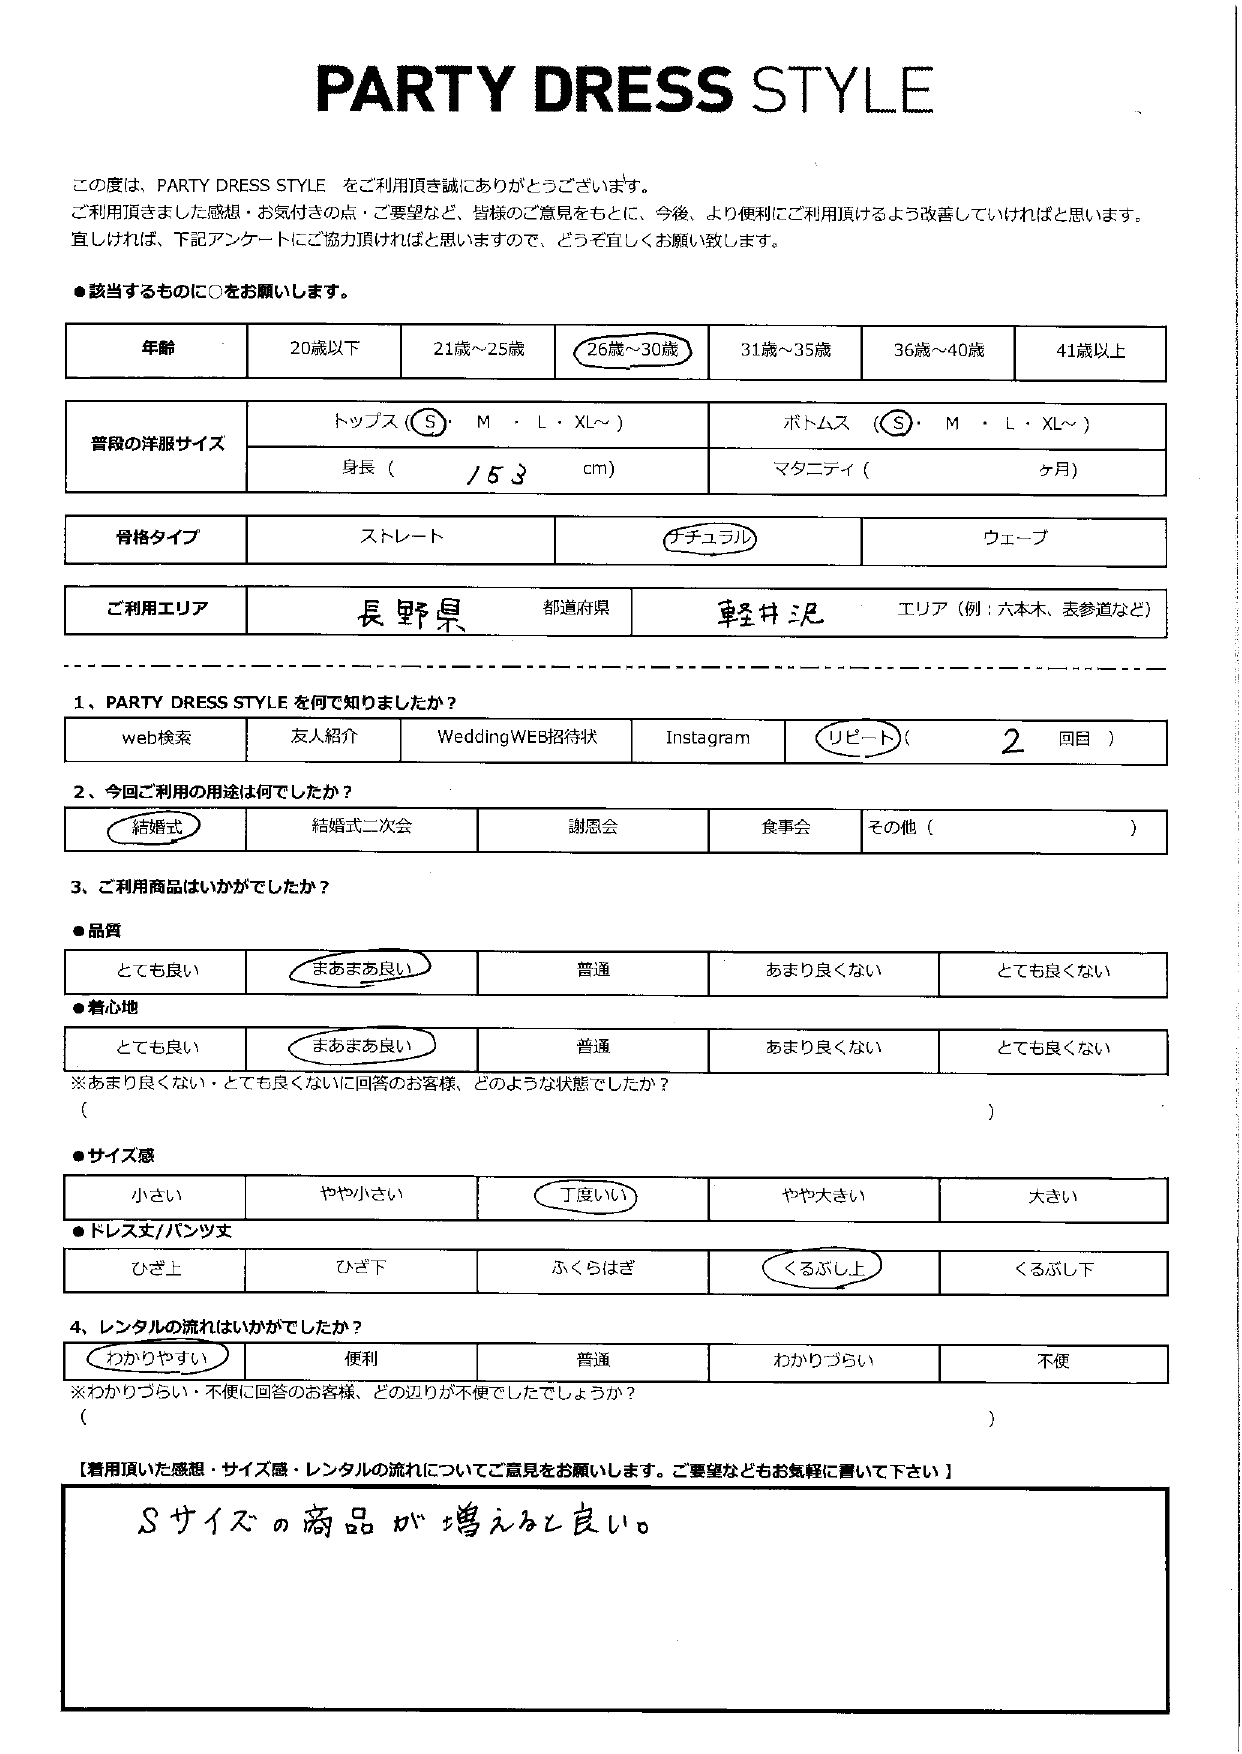 PARTY DRESS STYLE
この度は、PARTY DRESS STYLE をご利用頂き誠にありがとうございます。
ご利用頂きました感想・お気付きの点・ご要望など、皆様のご意見をもとに、今後、より便利にご利用頂けるよう改善していければと思います。
宜しければ、下記アンケートにご協力頂ければと思いますので、どうぞ宜しくお願い致します。
●該当するものに○をお願いします。
年齢 20歳以下 21歳～25歳 26歳～30歳 31歳～35歳 36歳～40歳 41歳以上
普段の洋服サイズ
トップス (S・ M ・ L ・ XL～ ) ボトムス (S・ M ・ L ・ XL～ )
身長 ( 153 cm) マタニティ ( ヶ月)
骨格タイプ ストレート ナチュラル ウェーブ
ご利用エリア 長野県 都道府県 軽井沢 エリア（例：六本木、表参道など）
1、PARTY DRESS STYLE を何で知りましたか？
web検索 友人紹介 WeddingWEB招待状 Instagram リピート ( 2 回目 )
2、今回ご利用の用途は何でしたか？
結婚式 結婚式二次会 謝恩会 食事会 その他 ( )
3、ご利用商品はいかがでしたか？
●品質
とても良い まあまあ良い 普通 あまり良くない とても良くない
●着心地
とても良い まあまあ良い 普通 あまり良くない とても良くない
※あまり良くない・とても良くないに回答のお客様、どのような状態でしたか？
( )
●サイズ感
小さい やや小さい 丁度いい やや大きい 大きい
●ドレス丈/パンツ丈
ひざ上 ひざ下 ふくらはぎ くるぶし上 くるぶし下
4、レンタルの流れはいかがでしたか？
わかりやすい 便利 普通 わかりづらい 不便
※わかりづらい・不便に回答のお客様、どの辺りが不便でしたでしょうか？
( )
【着用頂いた感想・サイズ感・レンタルの流れについてご意見をお願いします。ご要望などもお気軽に書いて下さい】
Sサイズの商品が増えると良い。